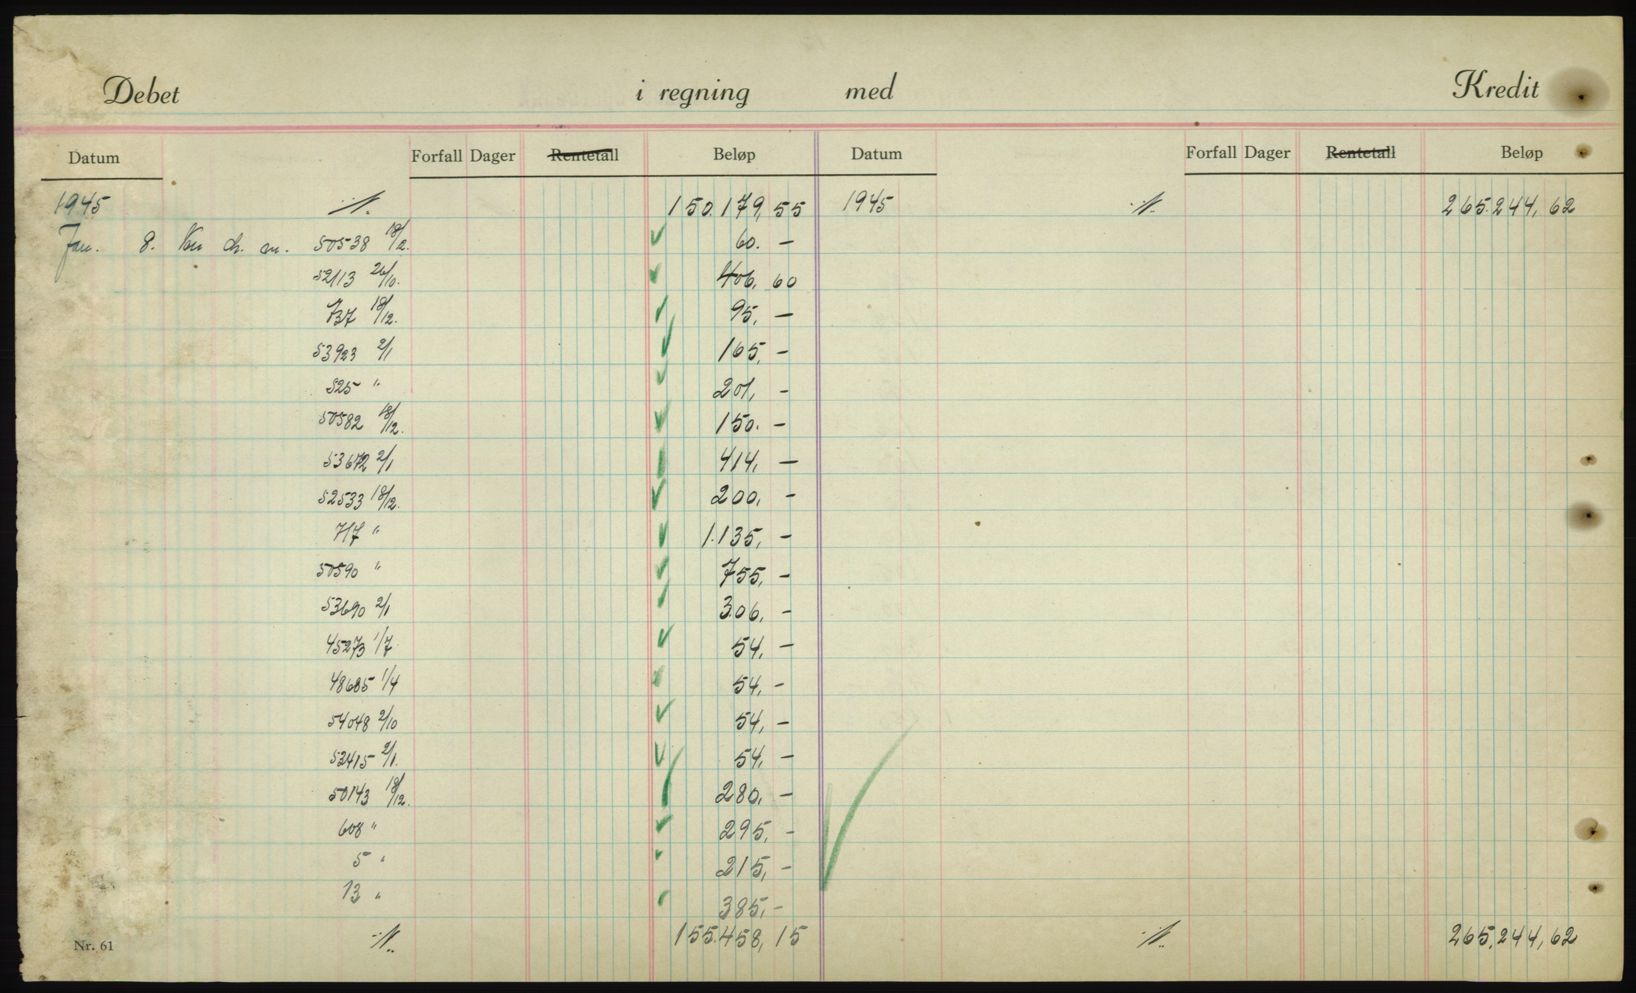 Debet i regning med Kredit
Datum Forfall Dager Rentetall Beløp Datum Forfall Dager Rentetall Beløp
1945 150.179,55 1945 265.244,62
Jan. 8. 50538 18/12. 60. —
52113 26/10. 406,60
737 18/12. 95, —
53923 2/1 165, —
525 " 201, —
50582 18/12. 150. —
53672 2/1 414, —
52533 18/12. 200, —
717 " 1.135, —
50590 " 755, —
53690 2/1 306, —
45273 1/7 54, —
48685 1/4 54, —
54048 2/10 54, —
52415 2/1. 54, —
50143 18/12. 280, —
608 " 295, —
5 " 215, —
13 " 385, —
155.458,15 265.244,62
Nr. 61